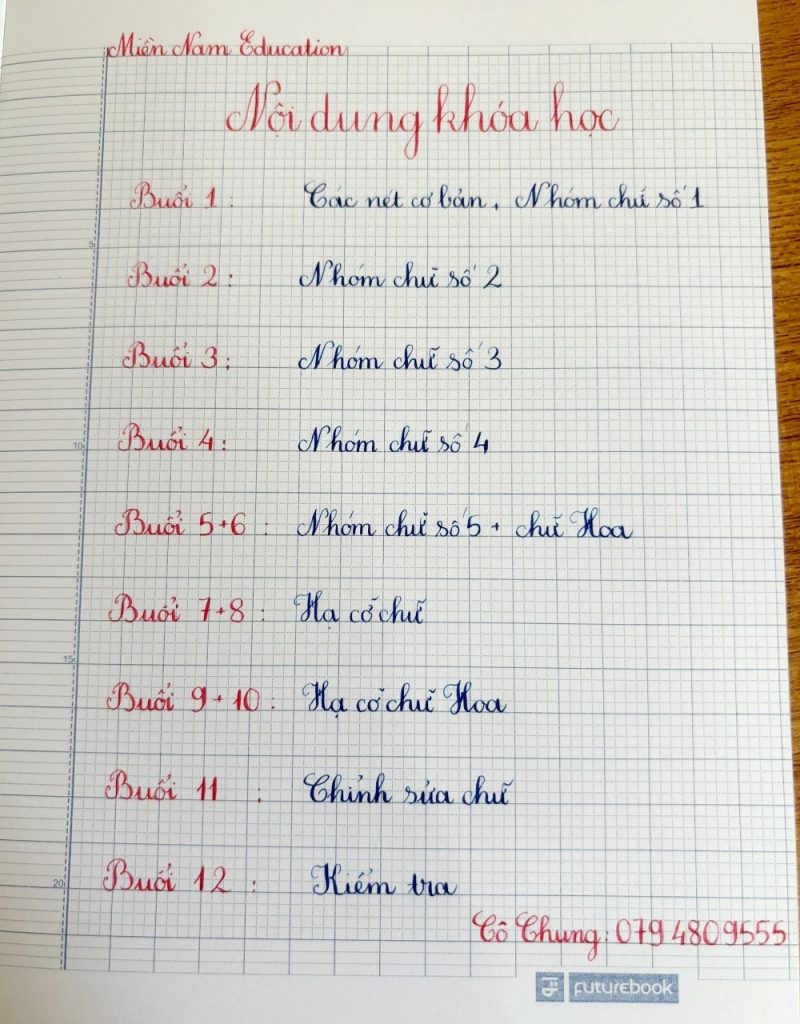 Miền Nam Education
Nội dung khóa học
Buổi 1 : Các nét cơ bản, Nhóm chữ số 1
5
Buổi 2 : Nhóm chữ số 2
Buổi 3 : Nhóm chữ số 3
10
Buổi 4 : Nhóm chữ số 4
Buổi 5+6 : Nhóm chữ số 5 + chữ Hoa
Buổi 7+8 : Hạ cỡ chữ
15
Buổi 9+10 : Hạ cỡ chữ Hoa
Buổi 11 : Chỉnh sửa chữ
20
Buổi 12 : Kiểm tra
Cô Chung: 079 4809555
FUTUREBOOK